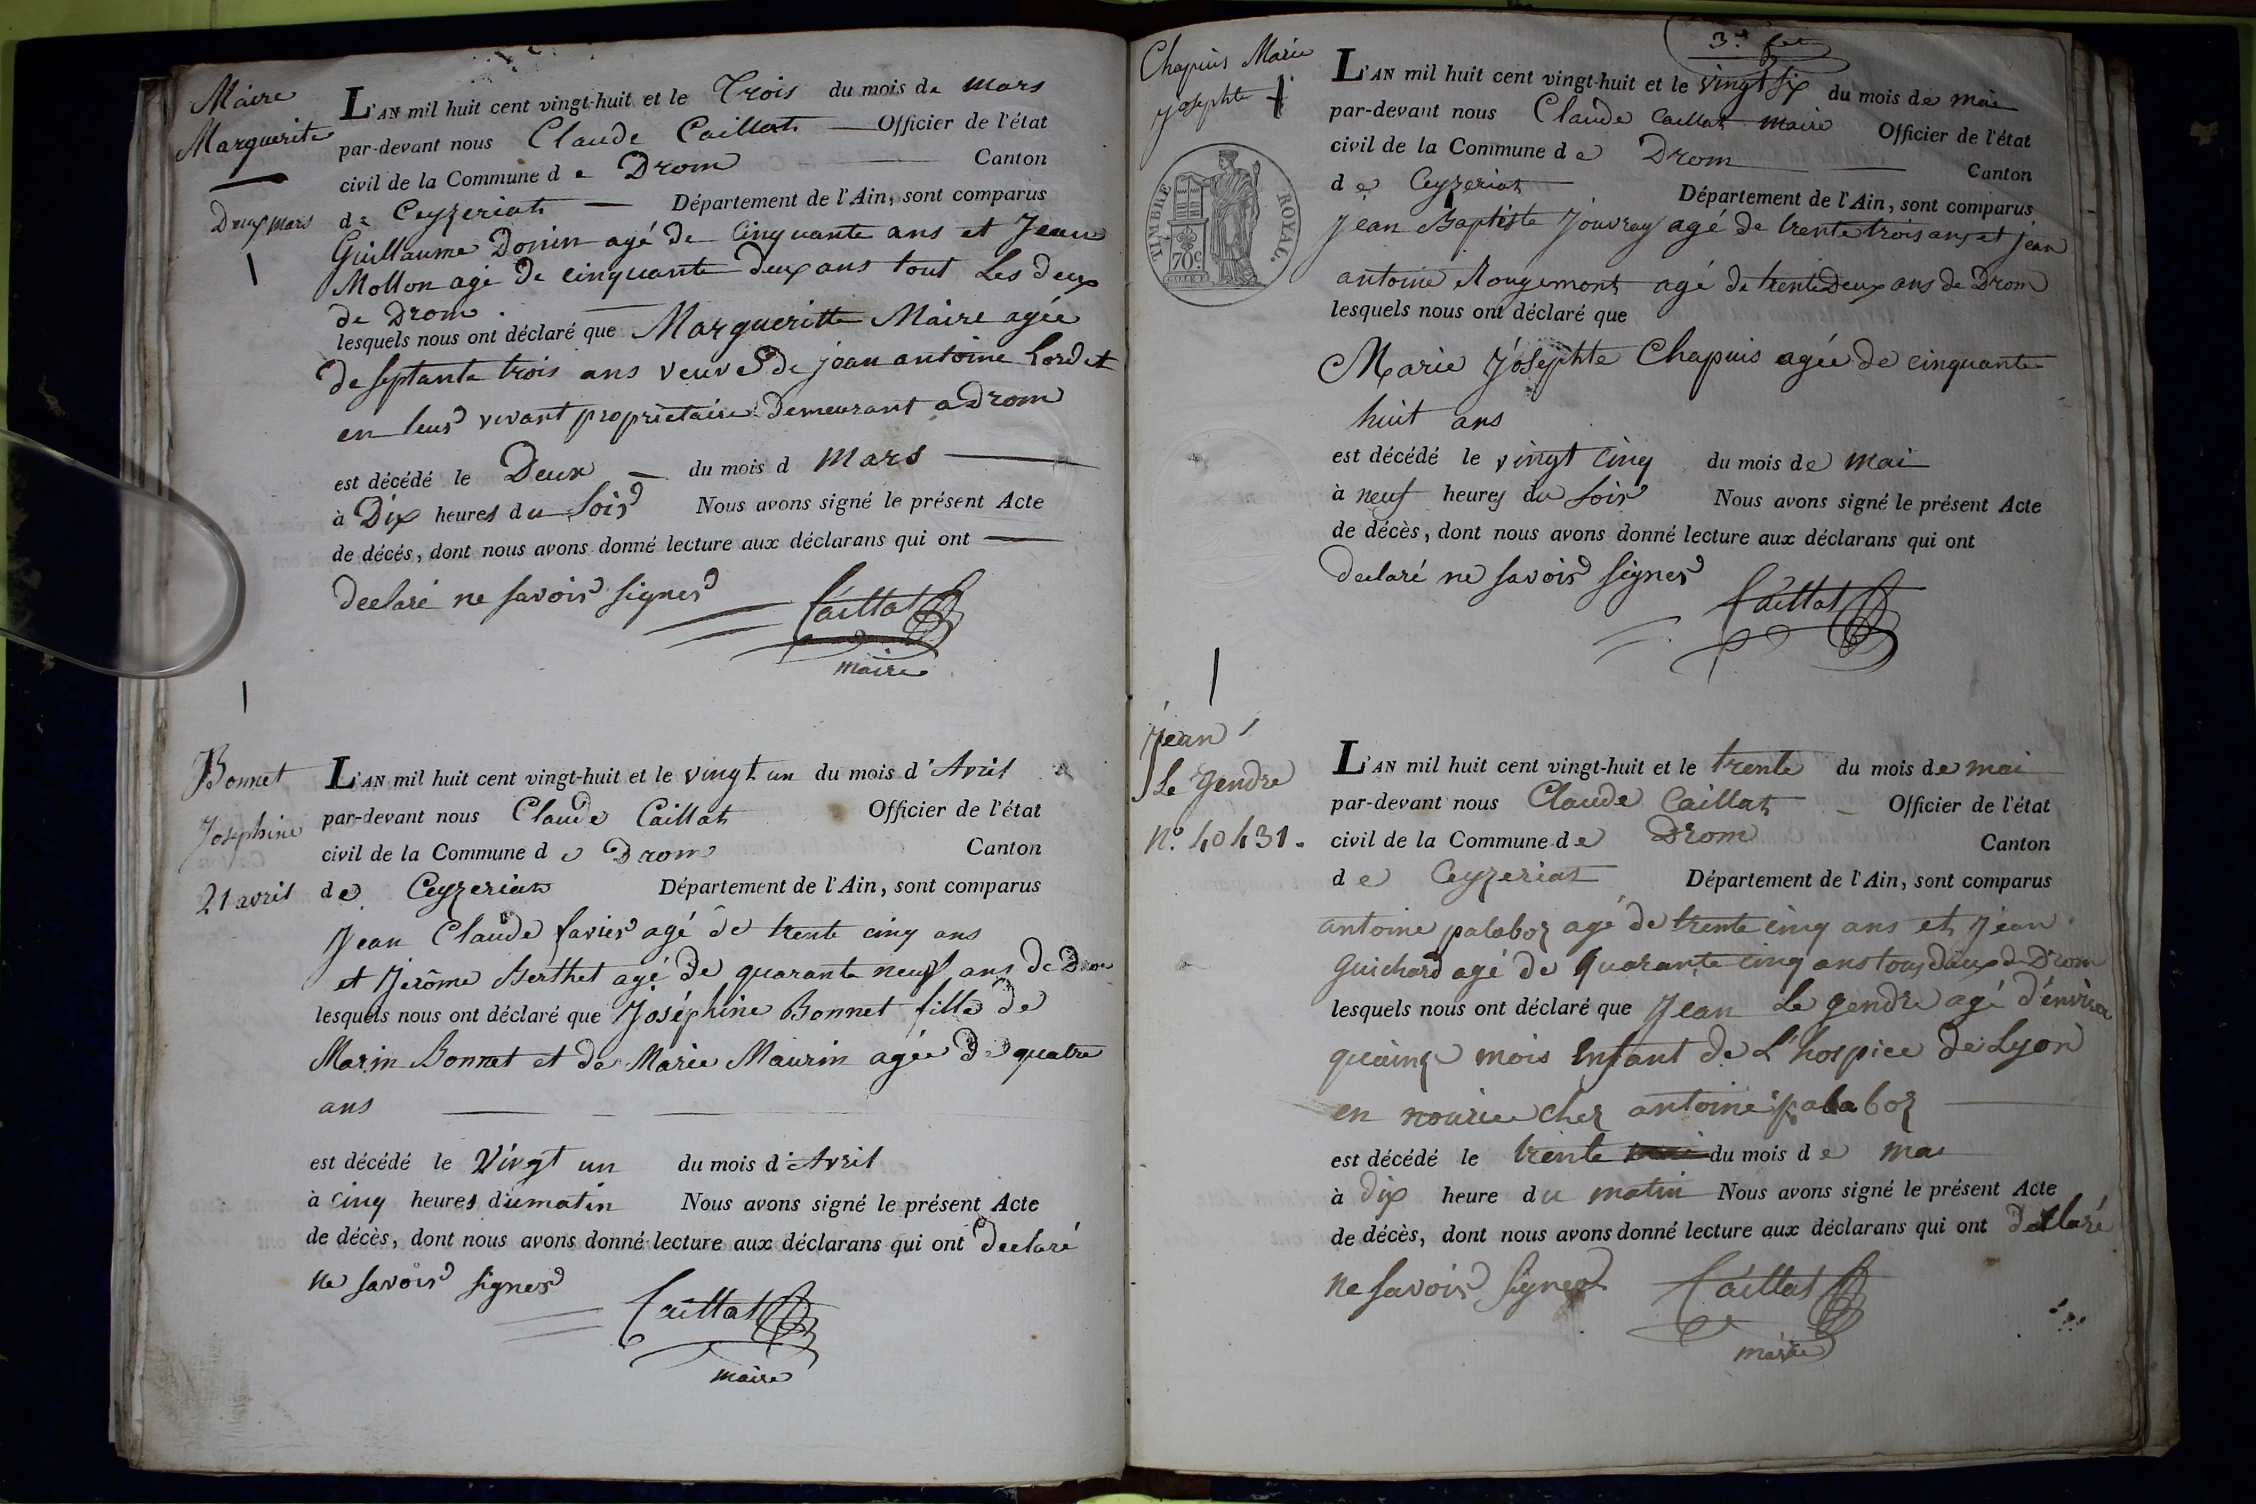 Maire
Marguerite
Deux mars
L'AN mil huit cent vingt-huit et le Trois du mois de mars
par-devant nous Claude Caillat Officier de l'état
civil de la Commune de Drom Canton
de Ceyzeriat Département de l'Ain, sont comparus
Guillaume Donin agé de Cinquante ans et Jean
Mollon agé de cinquante deux ans tout Les deux
de Drom
lesquels nous ont déclaré que Margueritte Maire agée
de septante trois ans veuve de jean antoine
en leur vivant proprietaire demeurant a Drom
est décédé le Deux du mois d mars
à Dix heures du Soir Nous avons signé le présent Acte
de décés, dont nous avons donné lecture aux déclarans qui ont
declaré ne savoir signer
Caillat
maire
Bonnet
Josephine
21 avril
L'AN mil huit cent vingt-huit et le vingt un du mois d'Avril
par-devant nous Claude Caillat Officier de l'état
civil de la Commune de Drom Canton
de Ceyzeriat Département de l'Ain, sont comparus
Jean Claude favier agé de trente cinq ans
et Jérôme Berthet agé de quarante neuf ans de Drom
lesquels nous ont déclaré que Joséphine Bonnet fille de
Marin Bonnet et de Marie Maurin agée de quatre
ans
est décédé le Vingt un du mois d'Avril
à cinq heures du matin Nous avons signé le présent Acte
de décès, dont nous avons donné lecture aux déclarans qui ont declaré
ne savoir signer
Caillat
maire
3.e
Chapuis Marie
josephte
TIMBRE ROYAL.
70c.
L'AN mil huit cent vingt-huit et le vingt six du mois de mai
par-devant nous Claude Caillat maire Officier de l'état
civil de la Commune de Drom Canton
de Ceyzeriat Département de l'Ain, sont comparus
jean Baptiste Jouvray agé de trente trois ans et jean
antoine Rougemont agé de trente Deux ans de Drom
lesquels nous ont déclaré que
Marie Josephte Chapuis agée de cinquante
huit ans
est décédé le vingt cinq du mois de mai
à neuf heures du soir Nous avons signé le présent Acte
de décès, dont nous avons donné lecture aux déclarans qui ont
declaré ne savoir signer
Caillat
Jean
Le Gendre
N.o 40431.
L'AN mil huit cent vingt-huit et le trente du mois de mai
par-devant nous Claude Caillat Officier de l'état
civil de la Commune de Drom Canton
de Ceyzeriat Département de l'Ain, sont comparus
antoine palaboz agé de trente cinq ans et Jean
Guichard agé de Quarante cinq ans tous deux de Drom
lesquels nous ont déclaré que Jean Le gendre agé d'environ
mois Enfant de L'hospice de Lyon
en nourice chez antoine palaboz
est décédé le trente du mois de mai
à dix heure du matin Nous avons signé le présent Acte
de décès, dont nous avons donné lecture aux déclarans qui ont declaré
ne savoir signer
Caillat
maire